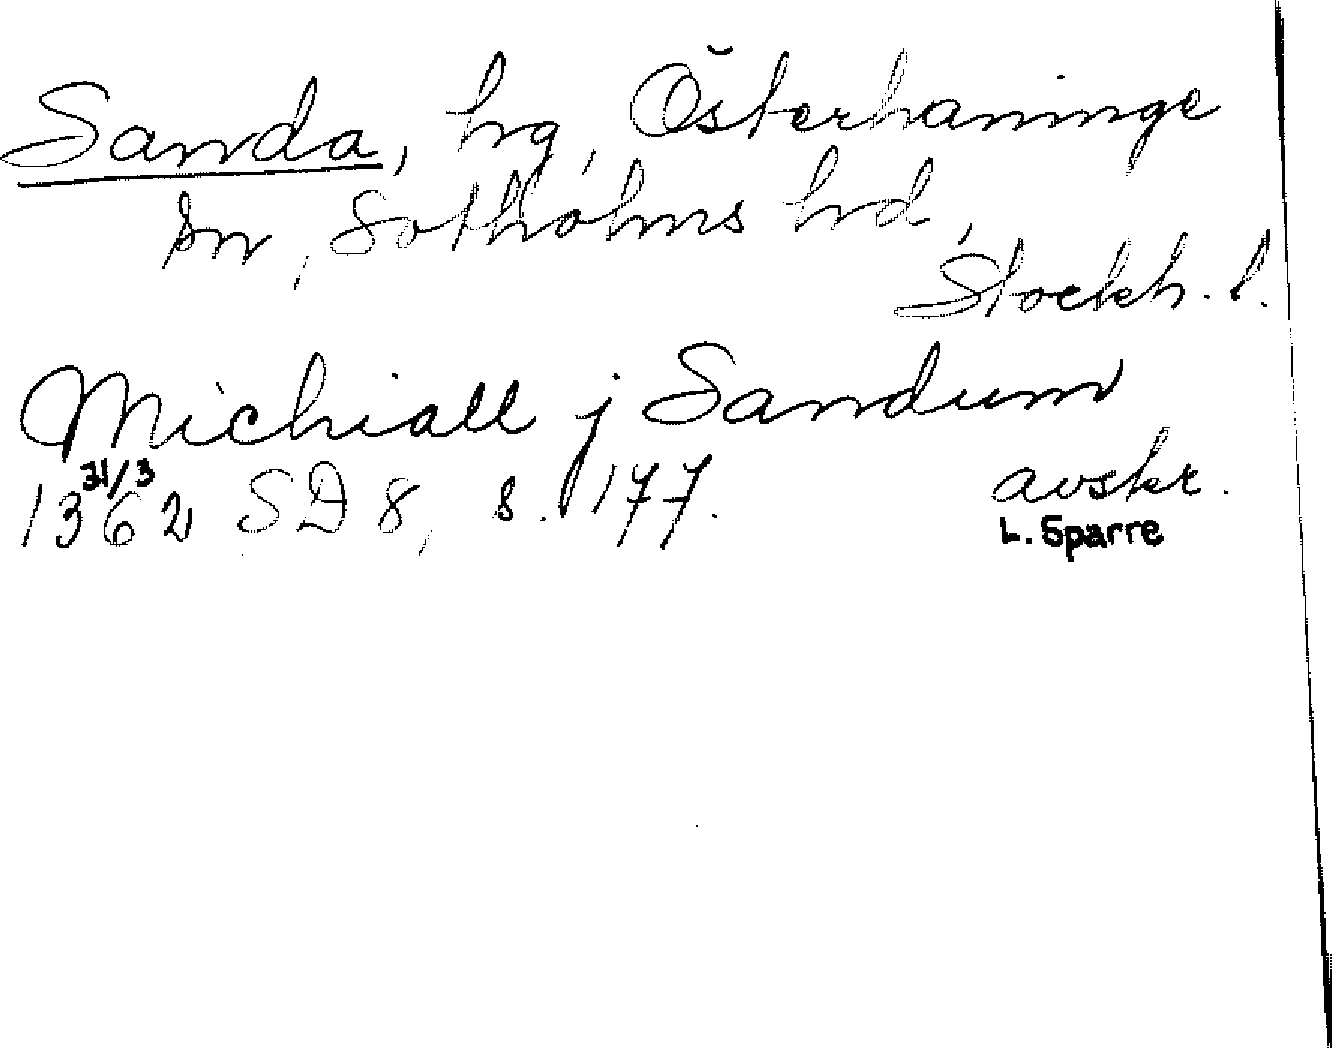 Sanda, hg, Österhaninge
sn, Sotholms hrd,
Stockh. l.
Michiall j Sandum
1362 31/3 SD 8, s. 177. avskr.
L. Sparre